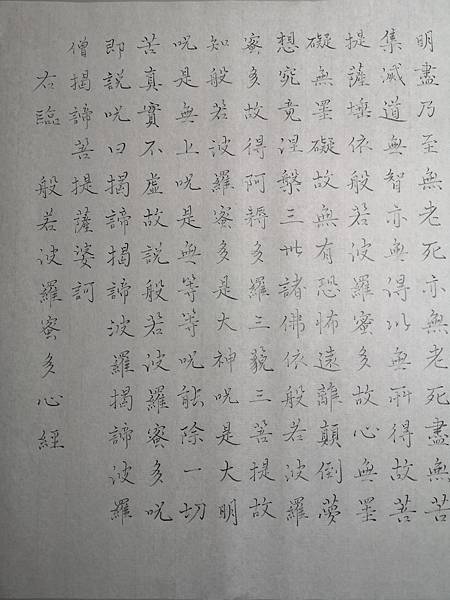 明盡乃至無老死亦無老死盡無苦
集滅道無智亦無得以無所得故菩
提薩埵依般若波羅蜜多故心無罣
礙無罣礙故無有恐怖遠離顛倒夢
想究竟涅槃三世諸佛依般若波羅
蜜多故得阿耨多羅三藐三菩提故
知般若波羅蜜多是大神呪是大明
呪是無上呪是無等等呪能除一切
苦真實不虛故說般若波羅蜜多呪
即說呪曰揭諦揭諦波羅揭諦波羅
僧揭諦菩提薩婆訶
右臨 般若波羅蜜多心經